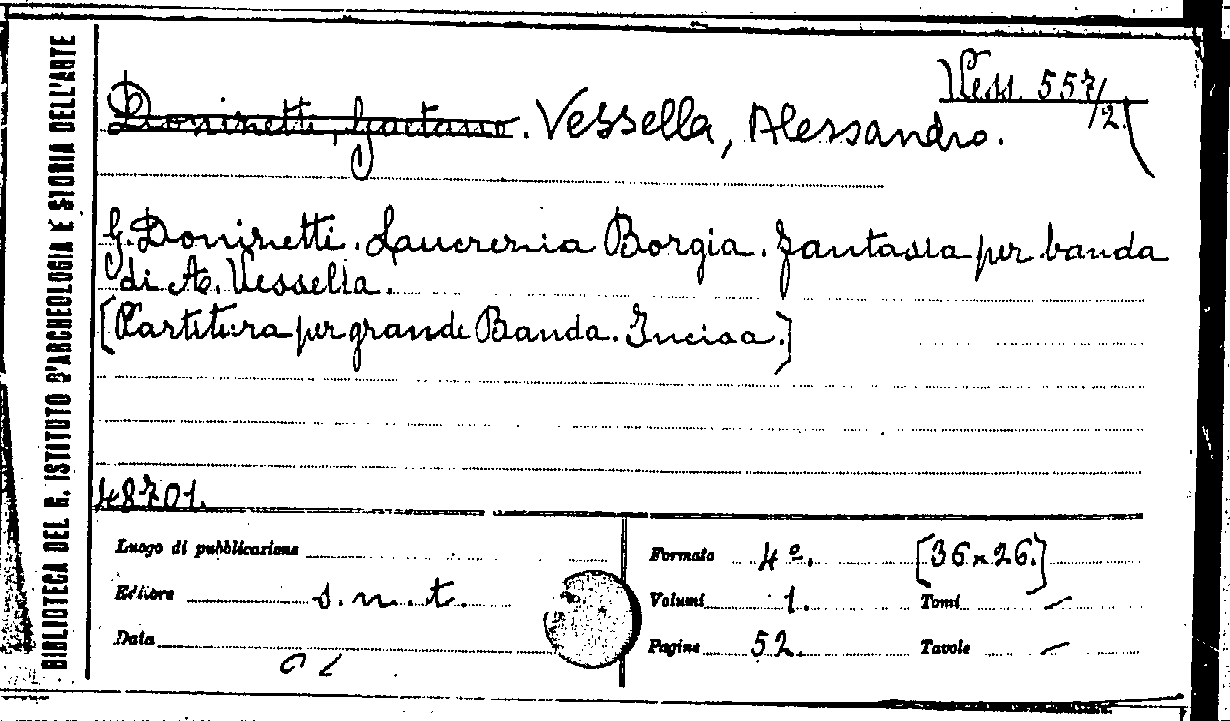 BIBLIOTECA DEL R. ISTITUTO D'ARCHEOLOGIA E STORIA DELL'ARTE
Vess. 557/2.
Donizetti, Gaetano. Vessella, Alessandro.
G. Donizetti. Lucrezia Borgia. Fantasia per banda
di A. Vessella.
[Partitura per grande Banda. Incisa.]
48701.
Luogo di pubblicazione
Editore s.n.t.
Data
Formato 4º. [36x26.]
Volumi 1. Tomi —
Pagine 52. Tavole —